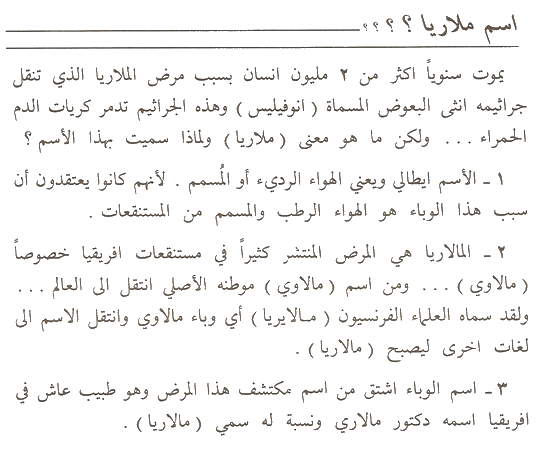 اسم ملاريا ؟ ؟ ؟ ؟
يموت سنوياً اكثر من ٢ مليون انسان بسبب مرض الملاريا الذي تنقل
جراثيمه انثى البعوض المسماة ( انوفيليس ) وهذه الجراثيم تدمر كريات الدم
الحمراء ... ولكن ما هو معنى ( ملاريا ) ولماذا سميت بهذا الأسم ؟
١ ـ الأسم ايطالي ويعني الهواء الرديء أو المُسمم . لأنهم كانوا يعتقدون أن
سبب هذا الوباء هو الهواء الرطب والمسمم من المستنقعات .
٢ ـ المالاريا هي المرض المنتشر كثيراً في مستنقعات افريقيا خصوصاً
( مالاوي ) ... ومن اسم ( مالاوي ) موطنه الأصلي انتقل الى العالم ...
ولقد سماه العلماء الفرنسيون ( مـالايريا ) أي وباء مالاوي وانتقل الاسم الى
لغات اخرى ليصبح ( مالاريا ) .
٣ ـ اسم الوباء اشتق من اسم مكتشف هذا المرض وهو طبيب عاش في
افريقيا اسمه دكتور مالاري ونسبة له سمي ( مالاريا ) .